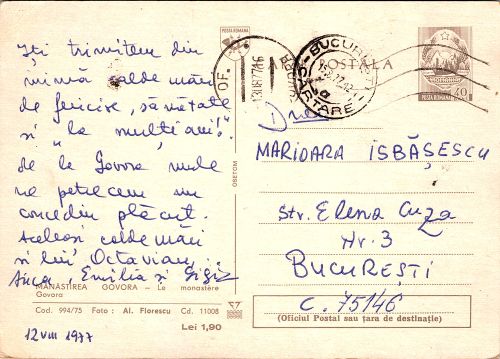 Iți trimitem din
inimă calde urări
de fericire, sănătate
și "la mulți ani!"
de la Govora unde
ne petrecem un
concediu plăcut.
Aceleași calde urări
și lui Octavian,
Anca, Emilia și Gigi
MÂNĂSTIREA GOVORA — Le monastere
Govora
Cod. 994/75 Foto: Al. Florescu Cd. 11008
Lei 1,90
12 VIII 1977
OSETOM
POSTA ROMANA
OF.
BUCUREȘTI
CARTARE
POȘTALA
POSTA ROMANA
40
D-nei
MARIOARA ISBĂȘESCU
Str. Elena Cuza
Nr. 3
BUCUREȘTI
C. 75146
(Oficiul Postal sau țara de destinație)